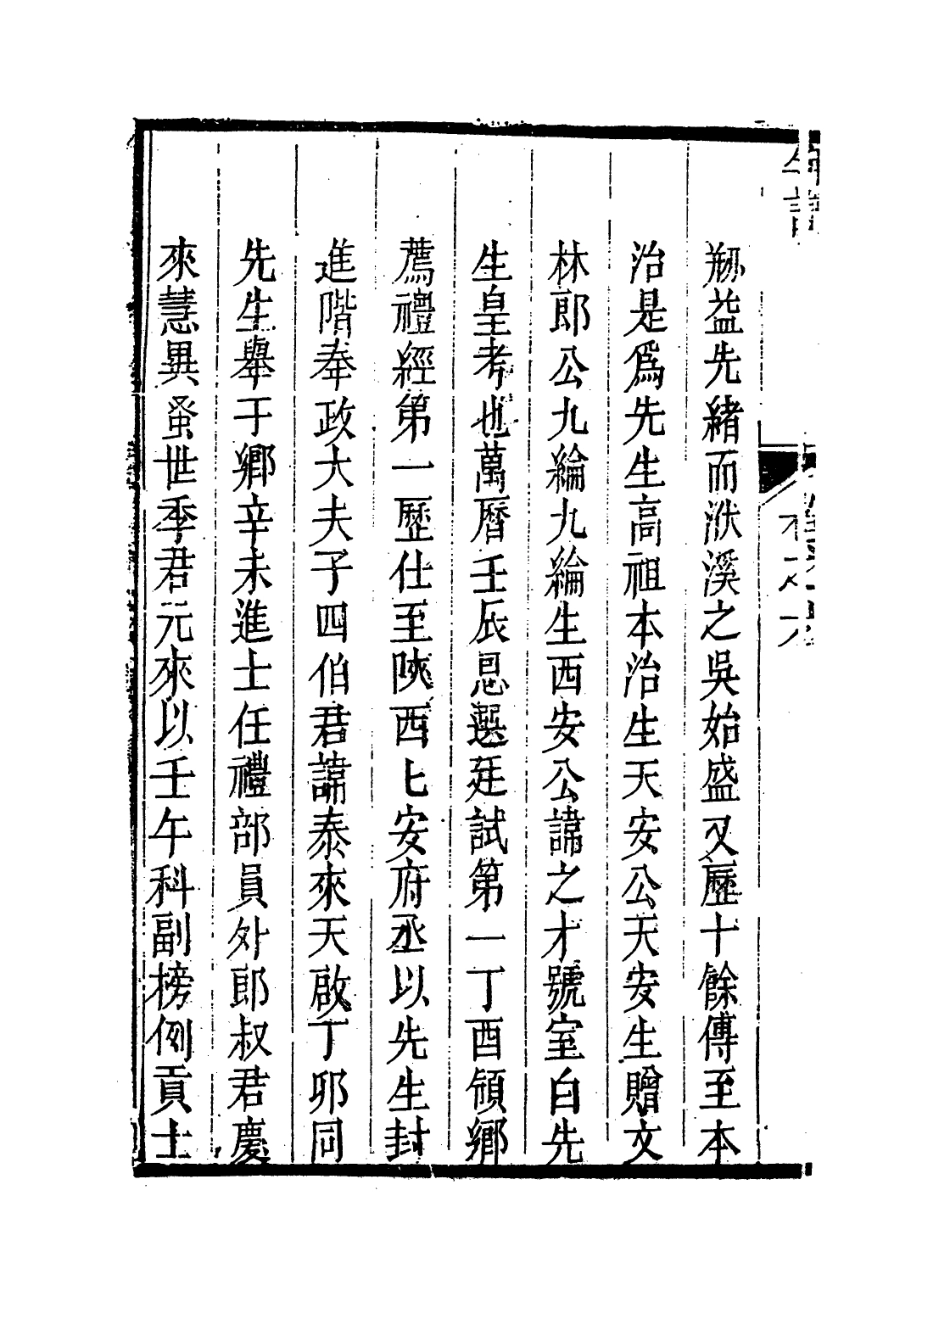 益先緒而洑溪之吳始盛又歷十餘傳至本
治是爲先生高祖本治生天安公天安生贈文
林郎公九綸九綸生西安公諱之才號室白先
生皇考也萬曆壬辰恩選廷試第一丁酉領鄉
薦禮經第一歷仕至陝西七安府丞以先生封
進階奉政大夫子四伯君諱泰來天啟丁卯同
先生舉于鄉辛未進士任禮部員外郎叔君慶
來慧異蚤世季君元來以壬午科副榜例貢士